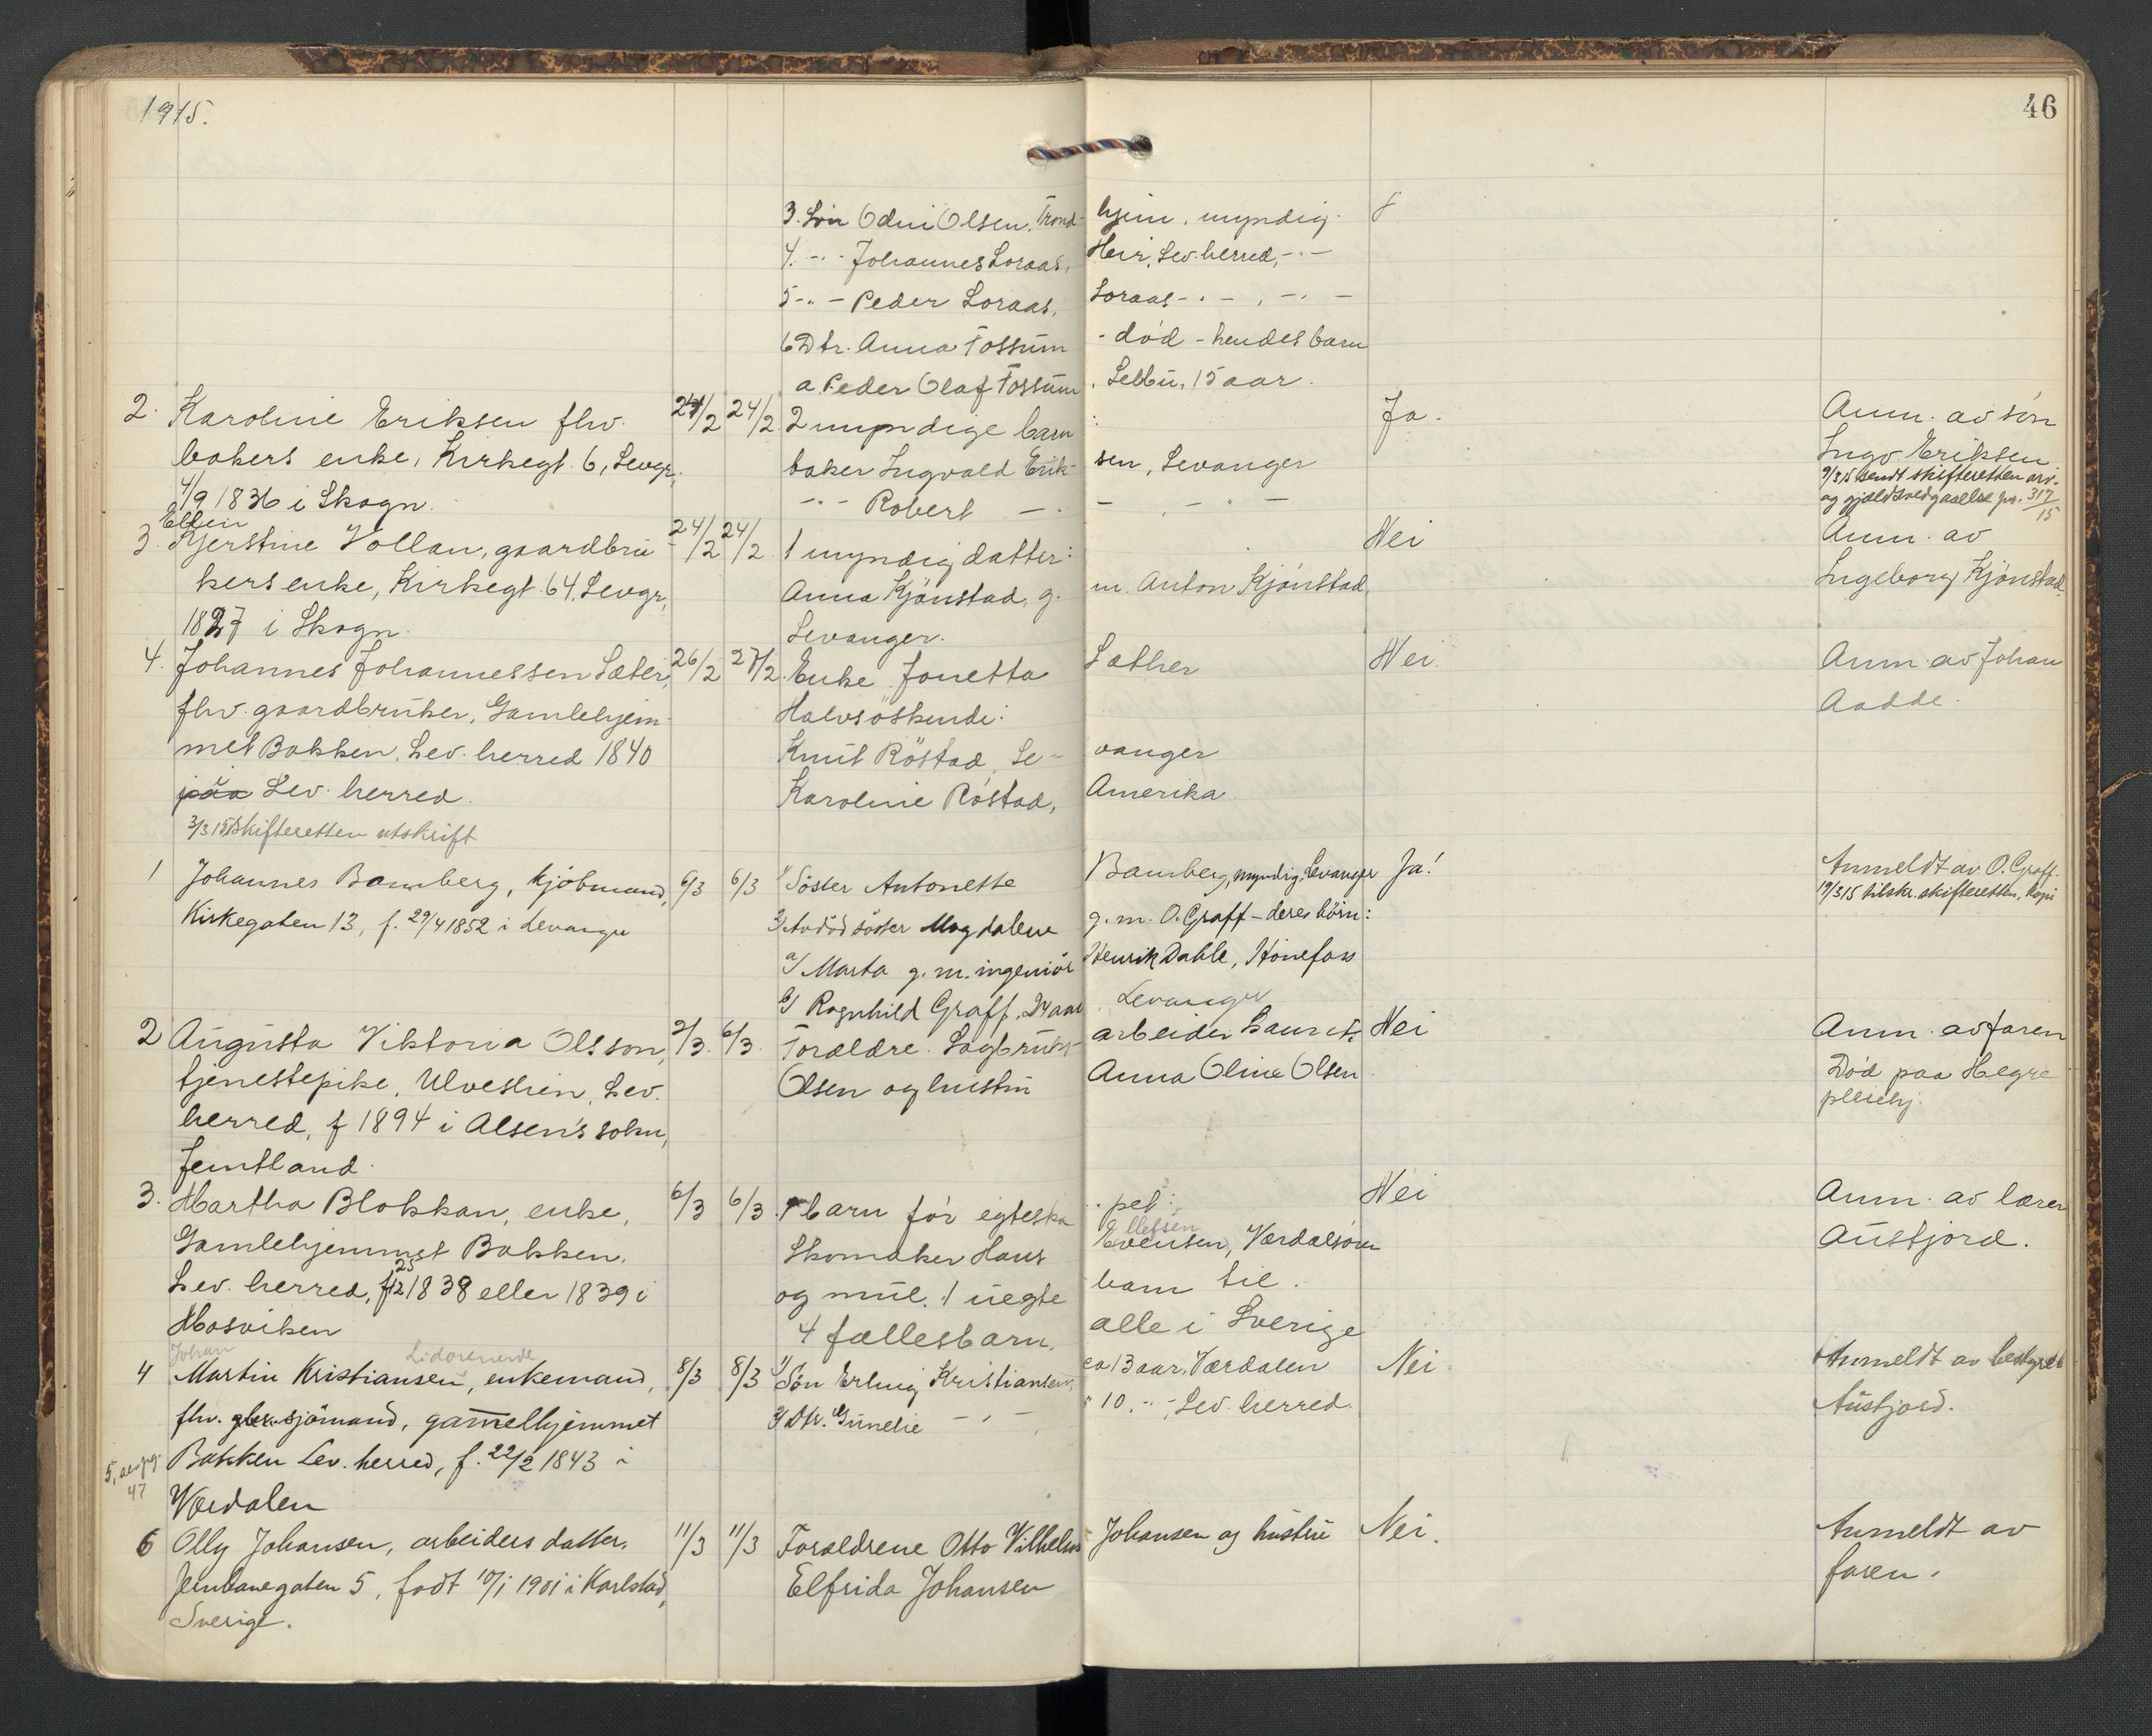 1915.
46
3. Søn Odin Olsen, Trondhjem, myndig.
4. -"- Johannes Loraas, Heir, Lev. herred, -"-
5 -"- Peder Loraas, Loraas -"-, -"-
6 Dtr. Anna Fossum - død - hendes barn
a Peder Olaf Fossum, Selbu, 15 aar.
2. Karoline Eriksen fhv. 24/2 24/2 2 myndige barn: Ja. Anm. av søn
bakers enke, Kirkegt. 6, Levgr. baker Ingvald Eriksen, Levanger Ingv. Eriksen
4/9 1836 i Skogn. -"- Robert -"- 9/3 15 sendt skifteretten arv-
og gjældsvedgaaelse jnr. 317/15
Ellen
3. Kjerstine Vollan, gaardbru- 24/2 24/2 1 myndig datter: Nei Anm. av
kers enke, Kirkegt. 64, Levgr, Anna Kjønstad, g. m. Anton Kjønstad, Ingeborg Kjønstad
1827 i Skogn. Levanger.
4. Johannes Johannessen Sæter, 26/2 27/2 Enke Jonetta Sæther Nei. Anm. av Johan
fhv. gaardbruker, Gamlehjem- Halvsøskende: Aadde.
met Bakken, Lev. herred 1840 Knut Røstad, Levanger
paa i Lev. herred. Karoline Røstad, Amerika.
3/3 15 Skifteretten utskrift
1 Johannes Bamberg, kjøbmand, 6/3 6/3 1/ Søster Antonette Bamberg, myndig, Levanger Ja! Anmeldt av O. Graff.
Kirkegaten 13, f. 29/4 1852 i Levanger 2/ Avdød søster Magdalene g. m. O. Graff - deres børn: 19/3 15 tilskr. skifteretten, kopi
a/ Marta g. m. ingeniør Henrik Dahle, Hønefoss
b/ Ragnhild Graff, 24 aar, Levanger
2 Augusta Viktoria Olsson, 2/3. 6/3. Forældre. Sagbruks- arbeider Laurits Nei Anm. av faren
tjenestepike, Ulveslien, Lev. Olsen og hustru Anna Oline Olsen Død paa Hegre
herred, f 1894 i Alsen's sokn, pleiehj.
Jemtland.
3. Martha Blokkan, enke, 6/3 6/3 1 barn før egteskapet: Nei Anm. av lærer
Gamlehjemmet Bakken, Skomaker Hans Evensen, Værdalsøren Austfjord.
Ellefsen
Lev. herred, f 25/12 1838 eller 1839 i og mul. 1 uegte barn til.
Mosviken 4 fællesbarn, alle i Sverige
Johan
4 Martin Kristiansen, enkemand, 8/3 8/3 1/ Søn Erling Kristiansen, ca 13 aar, Værdalen Nei. Anmeldt av bestyrer
fhv. sjømand, gamelhjemmet 2/ Dtr. Gunelie -"- " 10 -"-, Lev. herred. Austfjord.
Bakken Lev. herred, f. 22/2 1843 i
Værdalen
5, se pg.
47
6 Olly Johansen, arbeiders datter, 11/3 11/3 Forældrene Otto Vilhelm Johansen og hustru Nei. Anmeldt av
Jernbanegaten 5, født 10/1 1901 i Karlstad, Elfrida Johansen faren.
Sverige.